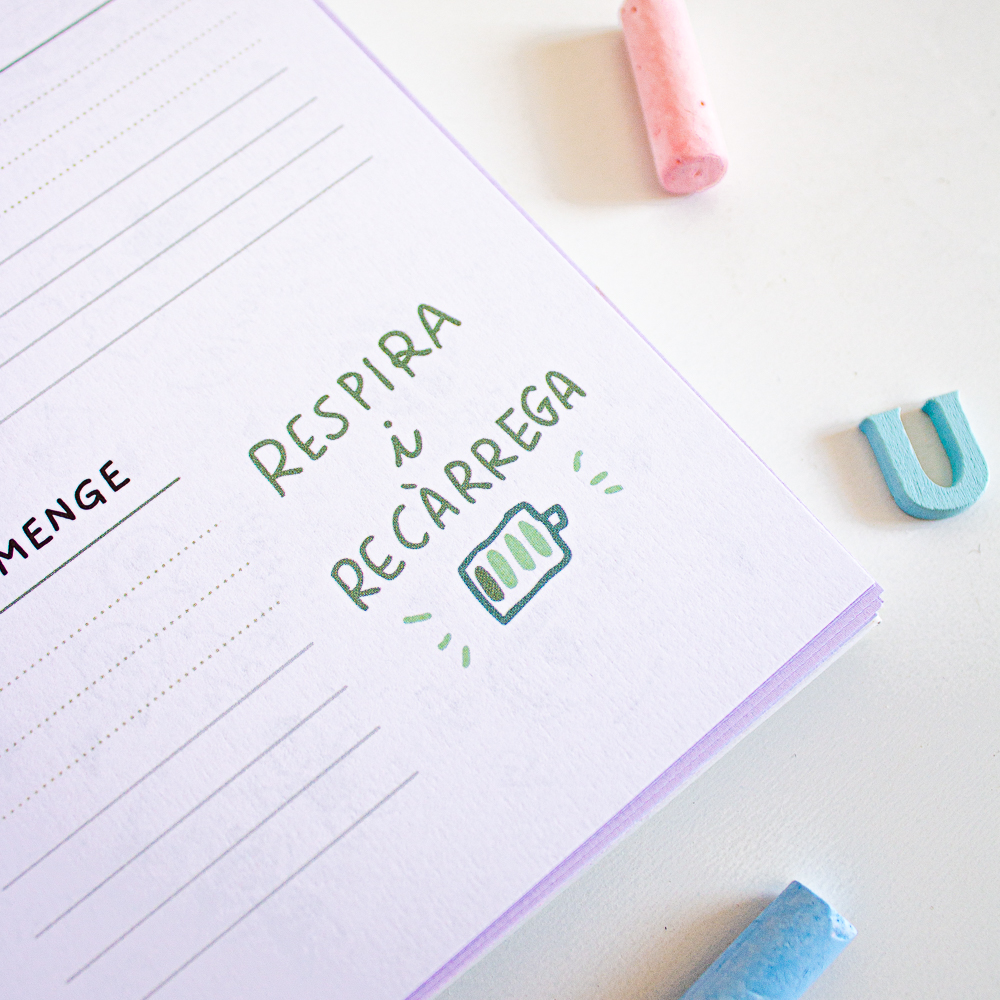 RESPIRA
i
RECÀRREGA
MENGE
U